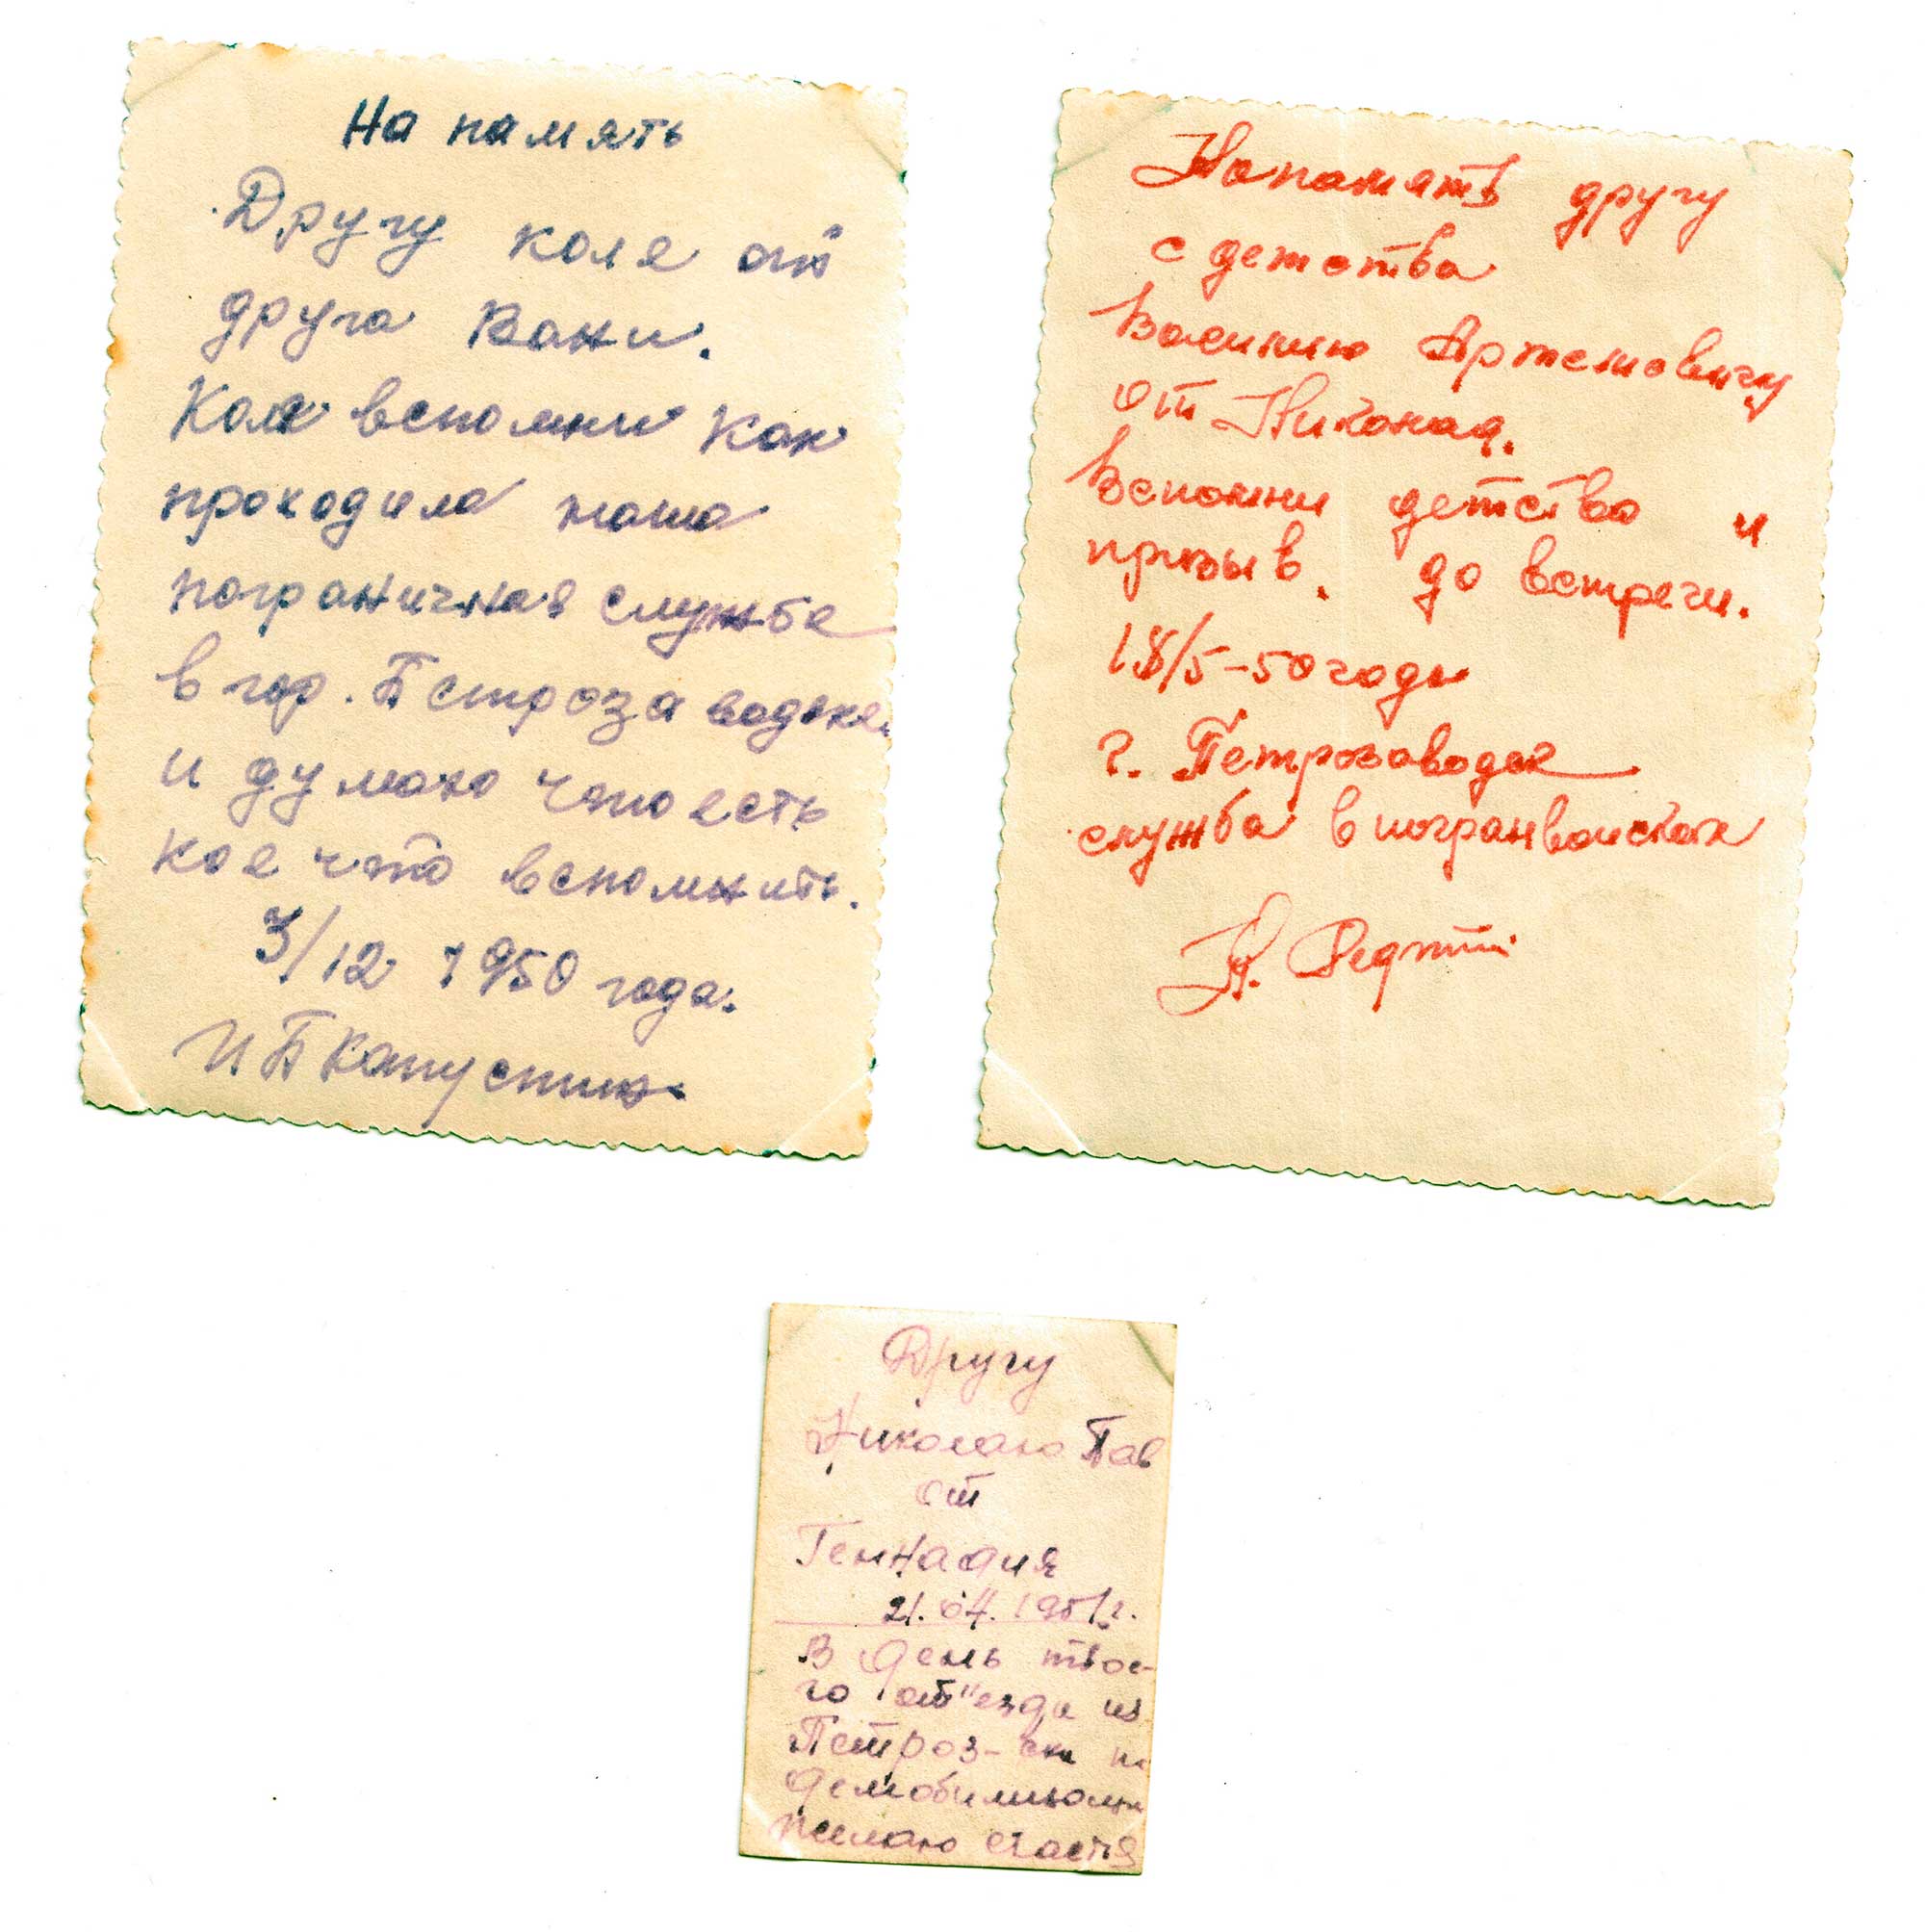 На память
Другу коле от
друга Вани.
Коля вспомни как
проходила наша
пограничная служба
в гор. Петрозаводске
и думаю что есть
кое что вспомнить.
3/12 1950 года.
И П Капустин
На память другу
с детства
Василию Артемовичу
от Николая.
Вспомни детство и
призыв. до встречи.
18/5-50 года
г. Петрозаводск
служба в погранвойсках
Н.
Другу
Николаю Пав
от
Геннадия
21.04.1951г.
В день твое-
го от"езда из
Петроз-ска по
демобилизации
желаю счастья